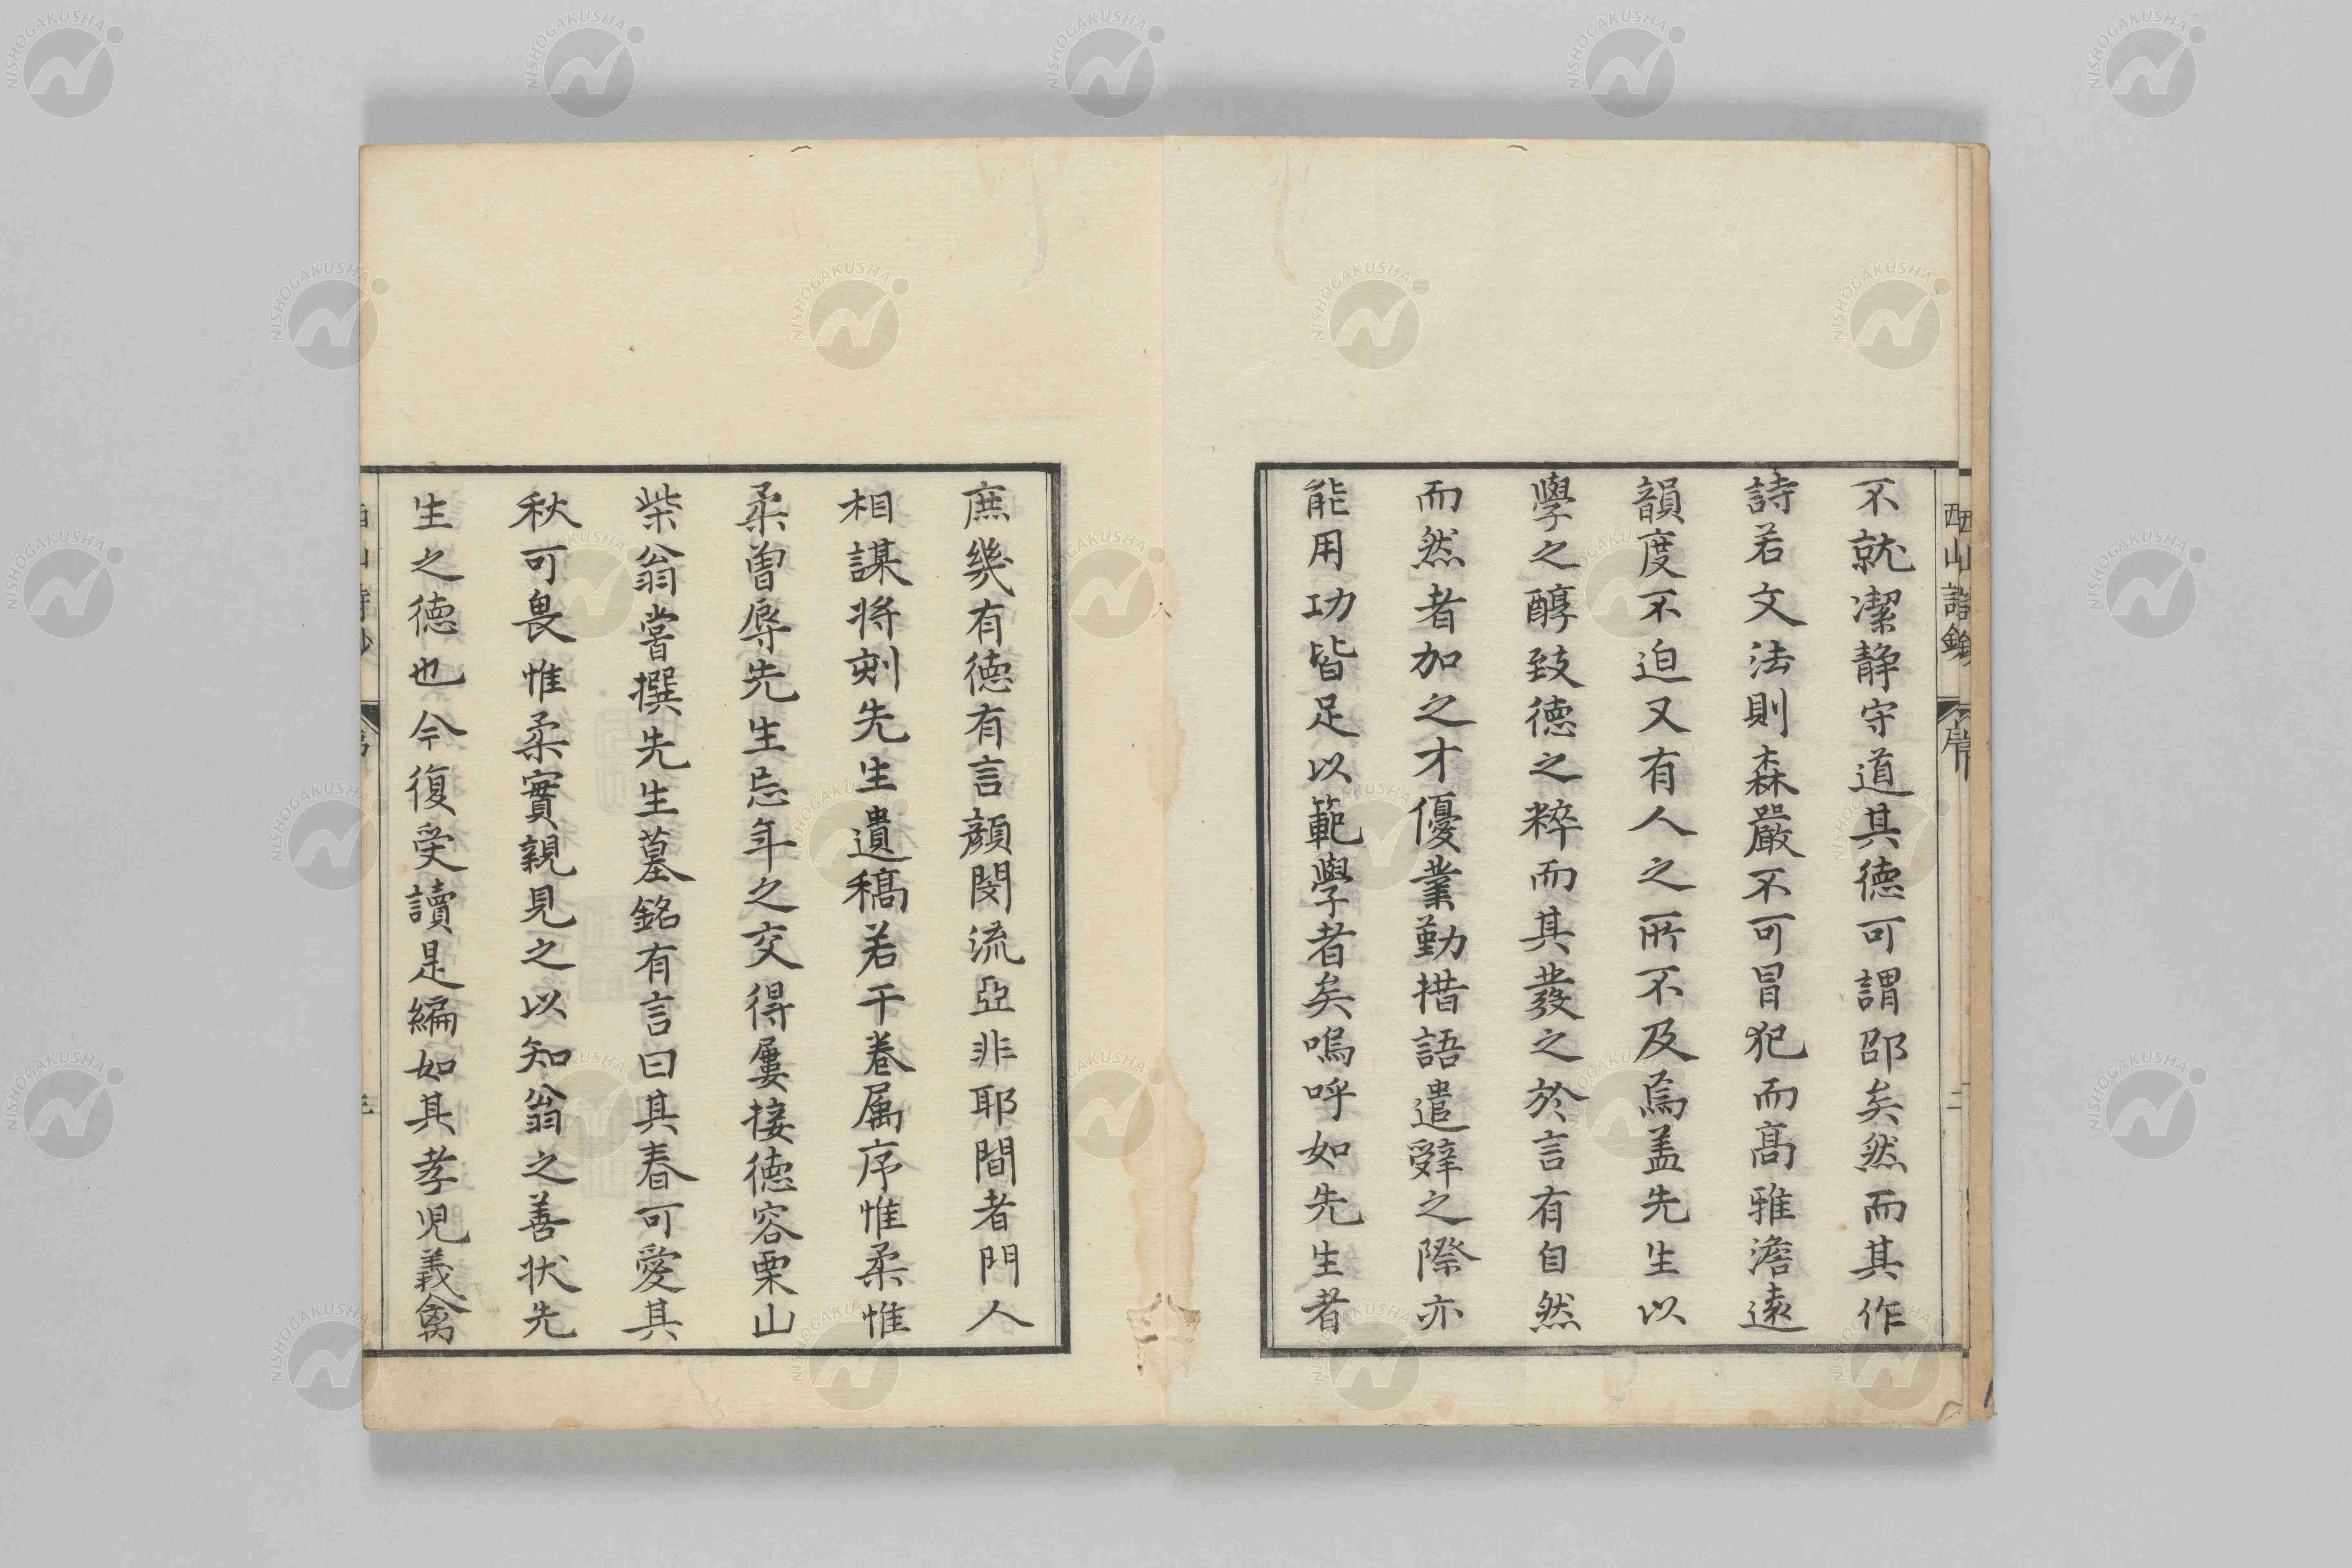 不就潔静守道其德可謂邵矣然而其作
詩若文法則森嚴不可冒犯而髙雅澹遠
韻度不迫又有人之所不及焉盖先生以
學之醇致德之粹而其發之於言有自然
而然者加之才優業勤措語遣辭之際亦
能用功皆足以範學者矣嗚呼如先生者
庶幾有德有言顔閔流亞非耶間者門人
相謀将刻先生遺稿若干卷属序惟柔惟
柔曽辱先生忘年之交得屢接德容栗山
柴翁嘗撰先生墓銘有言曰其春可愛其
秋可畏惟柔實親見之以知翁之善状先
生之德也今復受讀是編如其孝児義禽
NISHOGAKUSHA